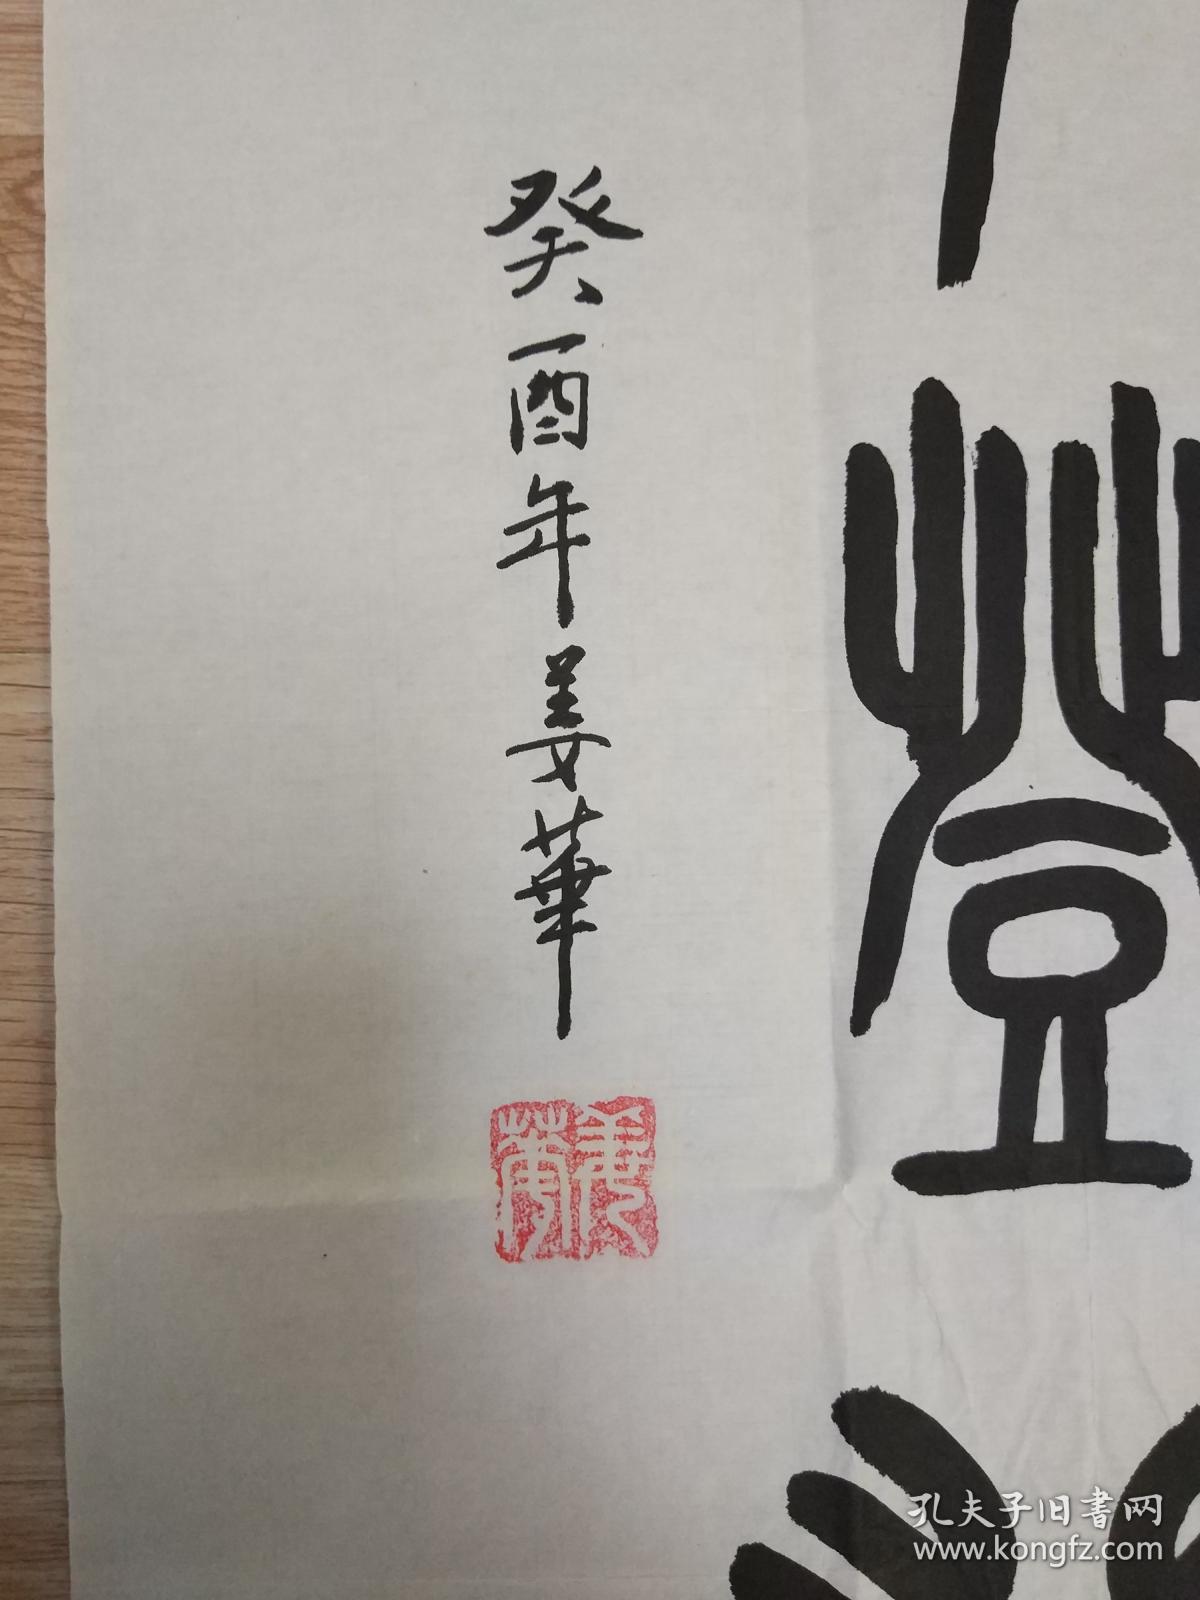 登
癸酉年姜華
姜華
孔夫子旧書网
www.kongfz.com